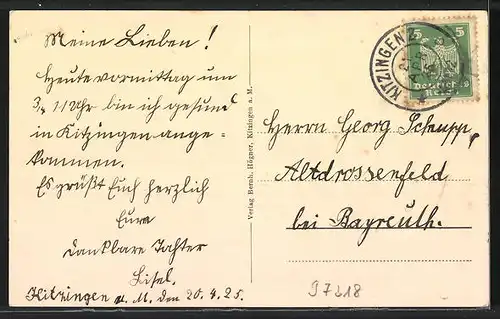 Meine Lieben!
Heute vormittag um
3/4 11 Uhr bin ich gesund
in Kitzingen ange-
kommen.
Es grüßt Euch herzlich
Eure
dankbare Tochter
Lisel.
Kitzingen a. M. den 20.4.25.
Verlag Bernh. Högner, Kitzingen a. M.
KITZINGEN
5 5
DEUTSCHES
REICH
Herrn Georg Schupp,
Altdrossenfeld
bei Bayreuth.
97818